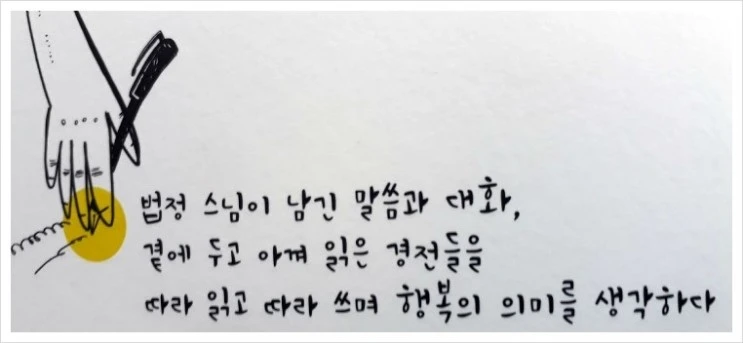 법정 스님이 남긴 말씀과 대화,
곁에 두고 아껴 읽은 경전들을
따라 읽고 따라 쓰며 행복의 의미를 생각하다